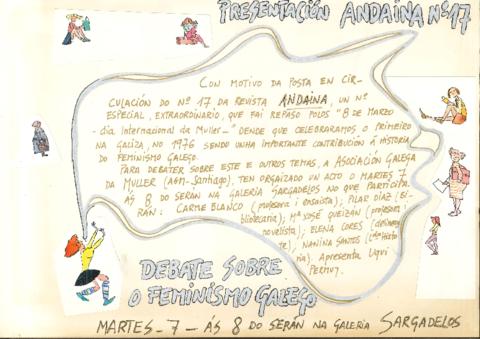 PRESENTACIÓN ANDAINA Nº17
CON MOTIVO DA POSTA EN CIR-
CULACIÓN DO Nº 17 DA REVISTA ANDAINA, UN Nº
ESPECIAL, EXTRAORDINARIO, QUE FAI REPASO POLOS "8 DE MARZO
-día Internacional da Muller-" DENDE QUE CELEBRARAMOS O PRIMEIRO
NA GALIZA, NO 1976 SENDO UNHA IMPORTANTE CONTRIBUCIÓN Á HISTORIA
DO FEMINISMO GALEGO.
PARA DEBATER SOBRE ESTE E OUTROS TEMAS, A ASOCIACIÓN GALEGA
DA MULLER (AGM-Santiago), TEN ORGAIZADO UN ACTO O MARTES 7
ÁS 8 DO SERÁN NA GALERIA SARGADELOS NO QUE PARTICIPA-
RÁN: CARME BLANCO (profesora i ensaista); PILAR DIAZ (Bi-
bliotecaria); Mª XOSÉ QUEIZAN (profesora
novelista); ELENA LORES
NANINA SANTOS (Histo
ria). Apresenta Uqui
PERMUY.
DEBATE SOBRE
O FEMINISMO GALEGO
MARTES - 7 - ÁS 8 DO SERÁN NA GALERIA SARGADELOS